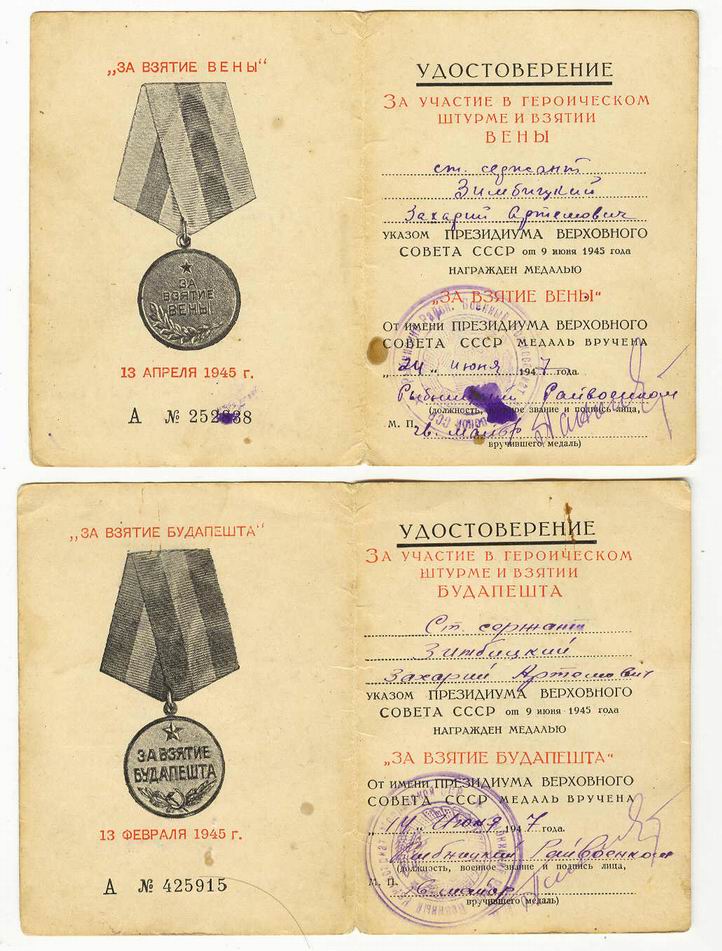 „ЗА ВЗЯТИЕ ВЕНЫ“
ЗА
ВЗЯТИЕ
ВЕНЫ
13 АПРЕЛЯ 1945 г.
А № 252 38
УДОСТОВЕРЕНИЕ
ЗА УЧАСТИЕ В ГЕРОИЧЕСКОМ
ШТУРМЕ И ВЗЯТИИ
ВЕНЫ
ст. сержант
Зимбицкий
Захарий Артемович
УКАЗОМ ПРЕЗИДИУМА ВЕРХОВНОГО
СОВЕТА СССР от 9 июня 1945 года
НАГРАЖДЕН МЕДАЛЬЮ
„ЗА ВЗЯТИЕ ВЕНЫ“
От имени ПРЕЗИДИУМА ВЕРХОВНОГО
СОВЕТА СССР МЕДАЛЬ ВРУЧЕНА
„24“ июня 1947 года.
Райвоенком
(должность, военное звание и подпись лица,
М. П. гв. майор
вручившего медаль)
„ЗА ВЗЯТИЕ БУДАПЕШТА“
ЗА ВЗЯТИЕ
БУДАПЕШТА
13 ФЕВРАЛЯ 1945 г.
А № 425915
УДОСТОВЕРЕНИЕ
ЗА УЧАСТИЕ В ГЕРОИЧЕСКОМ
ШТУРМЕ И ВЗЯТИИ
БУДАПЕШТА
Ст. сержант
Зимбицкий
Захарий Артемович
УКАЗОМ ПРЕЗИДИУМА ВЕРХОВНОГО
СОВЕТА СССР от 9 июня 1945 года
НАГРАЖДЕН МЕДАЛЬЮ
„ЗА ВЗЯТИЕ БУДАПЕШТА“
От имени ПРЕЗИДИУМА ВЕРХОВНОГО
СОВЕТА СССР МЕДАЛЬ ВРУЧЕНА
Июня 1947 года.
Райвоенком
(должность, военное звание и подпись лица,
М. П. гв майор
вручившего медаль)